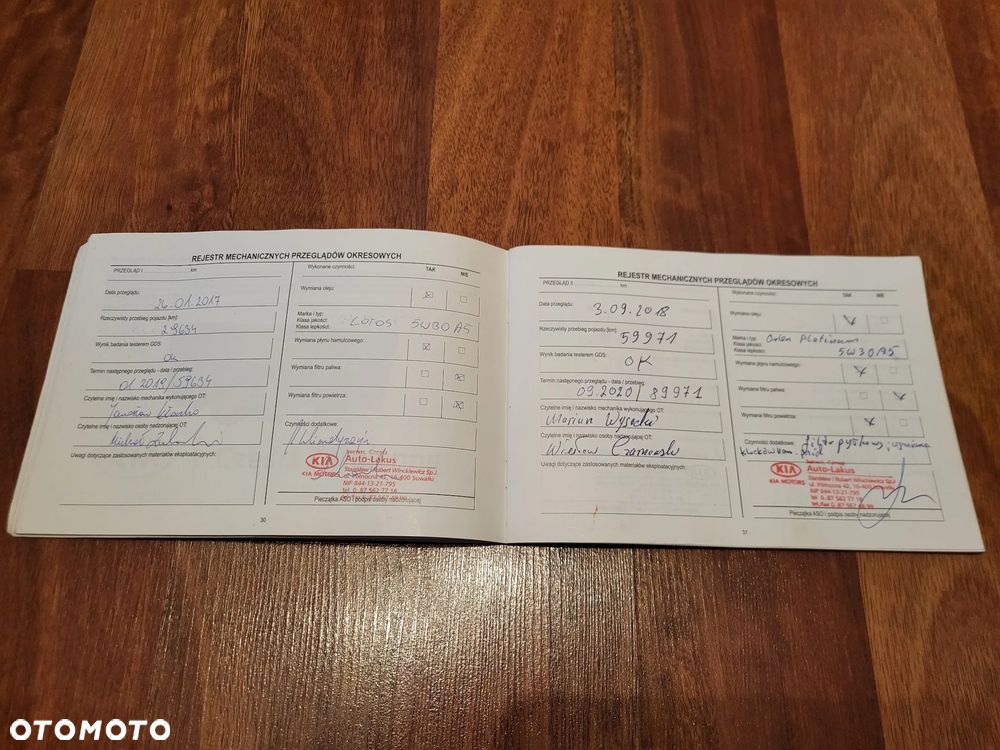 REJESTR MECHANICZNYCH PRZEGLĄDÓW OKRESOWYCH
PRZEGLĄD I km
Data przeglądu: 26.01.2017
Rzeczywisty przebieg pojazdu [km]: 29634
Wynik badania testerem GDS: ok
Termin następnego przeglądu - data / przebieg: 01.2019/59634
Czytelne imię i nazwisko mechanika wykonującego OT:
Jarosław
Czytelne imię i nazwisko osoby nadzorującej OT:
Uwagi dotyczące zastosowanych materiałów eksploatacyjnych:
Wykonane czynności: TAK NIE
Wymiana oleju:
Marka i typ: Lotos 5W30 A5
Klasa jakości:
Klasa lepkości:
Wymiana płynu hamulcowego:
Wymiana filtru paliwa:
Wymiana filtru powietrza:
Czynności dodatkowe:
KIA
KIA MOTORS
Auto-Lakus
Stanisław i Robert Wnukiewicz Sp.J.
ul. Północna 42, 16-400 Suwałki
NIP 844-13-21-795
tel. 0 87 562 77 16
Pieczątka ASO i podpis osoby nadzorującej
30
REJESTR MECHANICZNYCH PRZEGLĄDÓW OKRESOWYCH
PRZEGLĄD II km
Data przeglądu: 3.09.2018
Rzeczywisty przebieg pojazdu [km]: 59971
Wynik badania testerem GDS: OK
Termin następnego przeglądu - data / przebieg: 09.2020/89971
Czytelne imię i nazwisko mechanika wykonującego OT:
Marian Wysocki
Czytelne imię i nazwisko osoby nadzorującej OT:
Wiesław Czarnowski
Uwagi dotyczące zastosowanych materiałów eksploatacyjnych:
Wykonane czynności: TAK NIE
Wymiana oleju:
Marka i typ: Orlen Platinum
Klasa jakości:
Klasa lepkości: 5W30A5
Wymiana płynu hamulcowego:
Wymiana filtru paliwa:
Wymiana filtru powietrza:
Czynności dodatkowe: filtr pyłkowy, wymiana
klocków ham. przód
KIA
KIA MOTORS
Auto-Lakus
Stanisław i Robert Wnukiewicz Sp.J.
ul. Północna 42, 16-400 Suwałki
NIP 844-13-21-795
tel. 0 87 562 77 16
Pieczątka ASO i podpis osoby nadzorującej
31
OTOMOTO